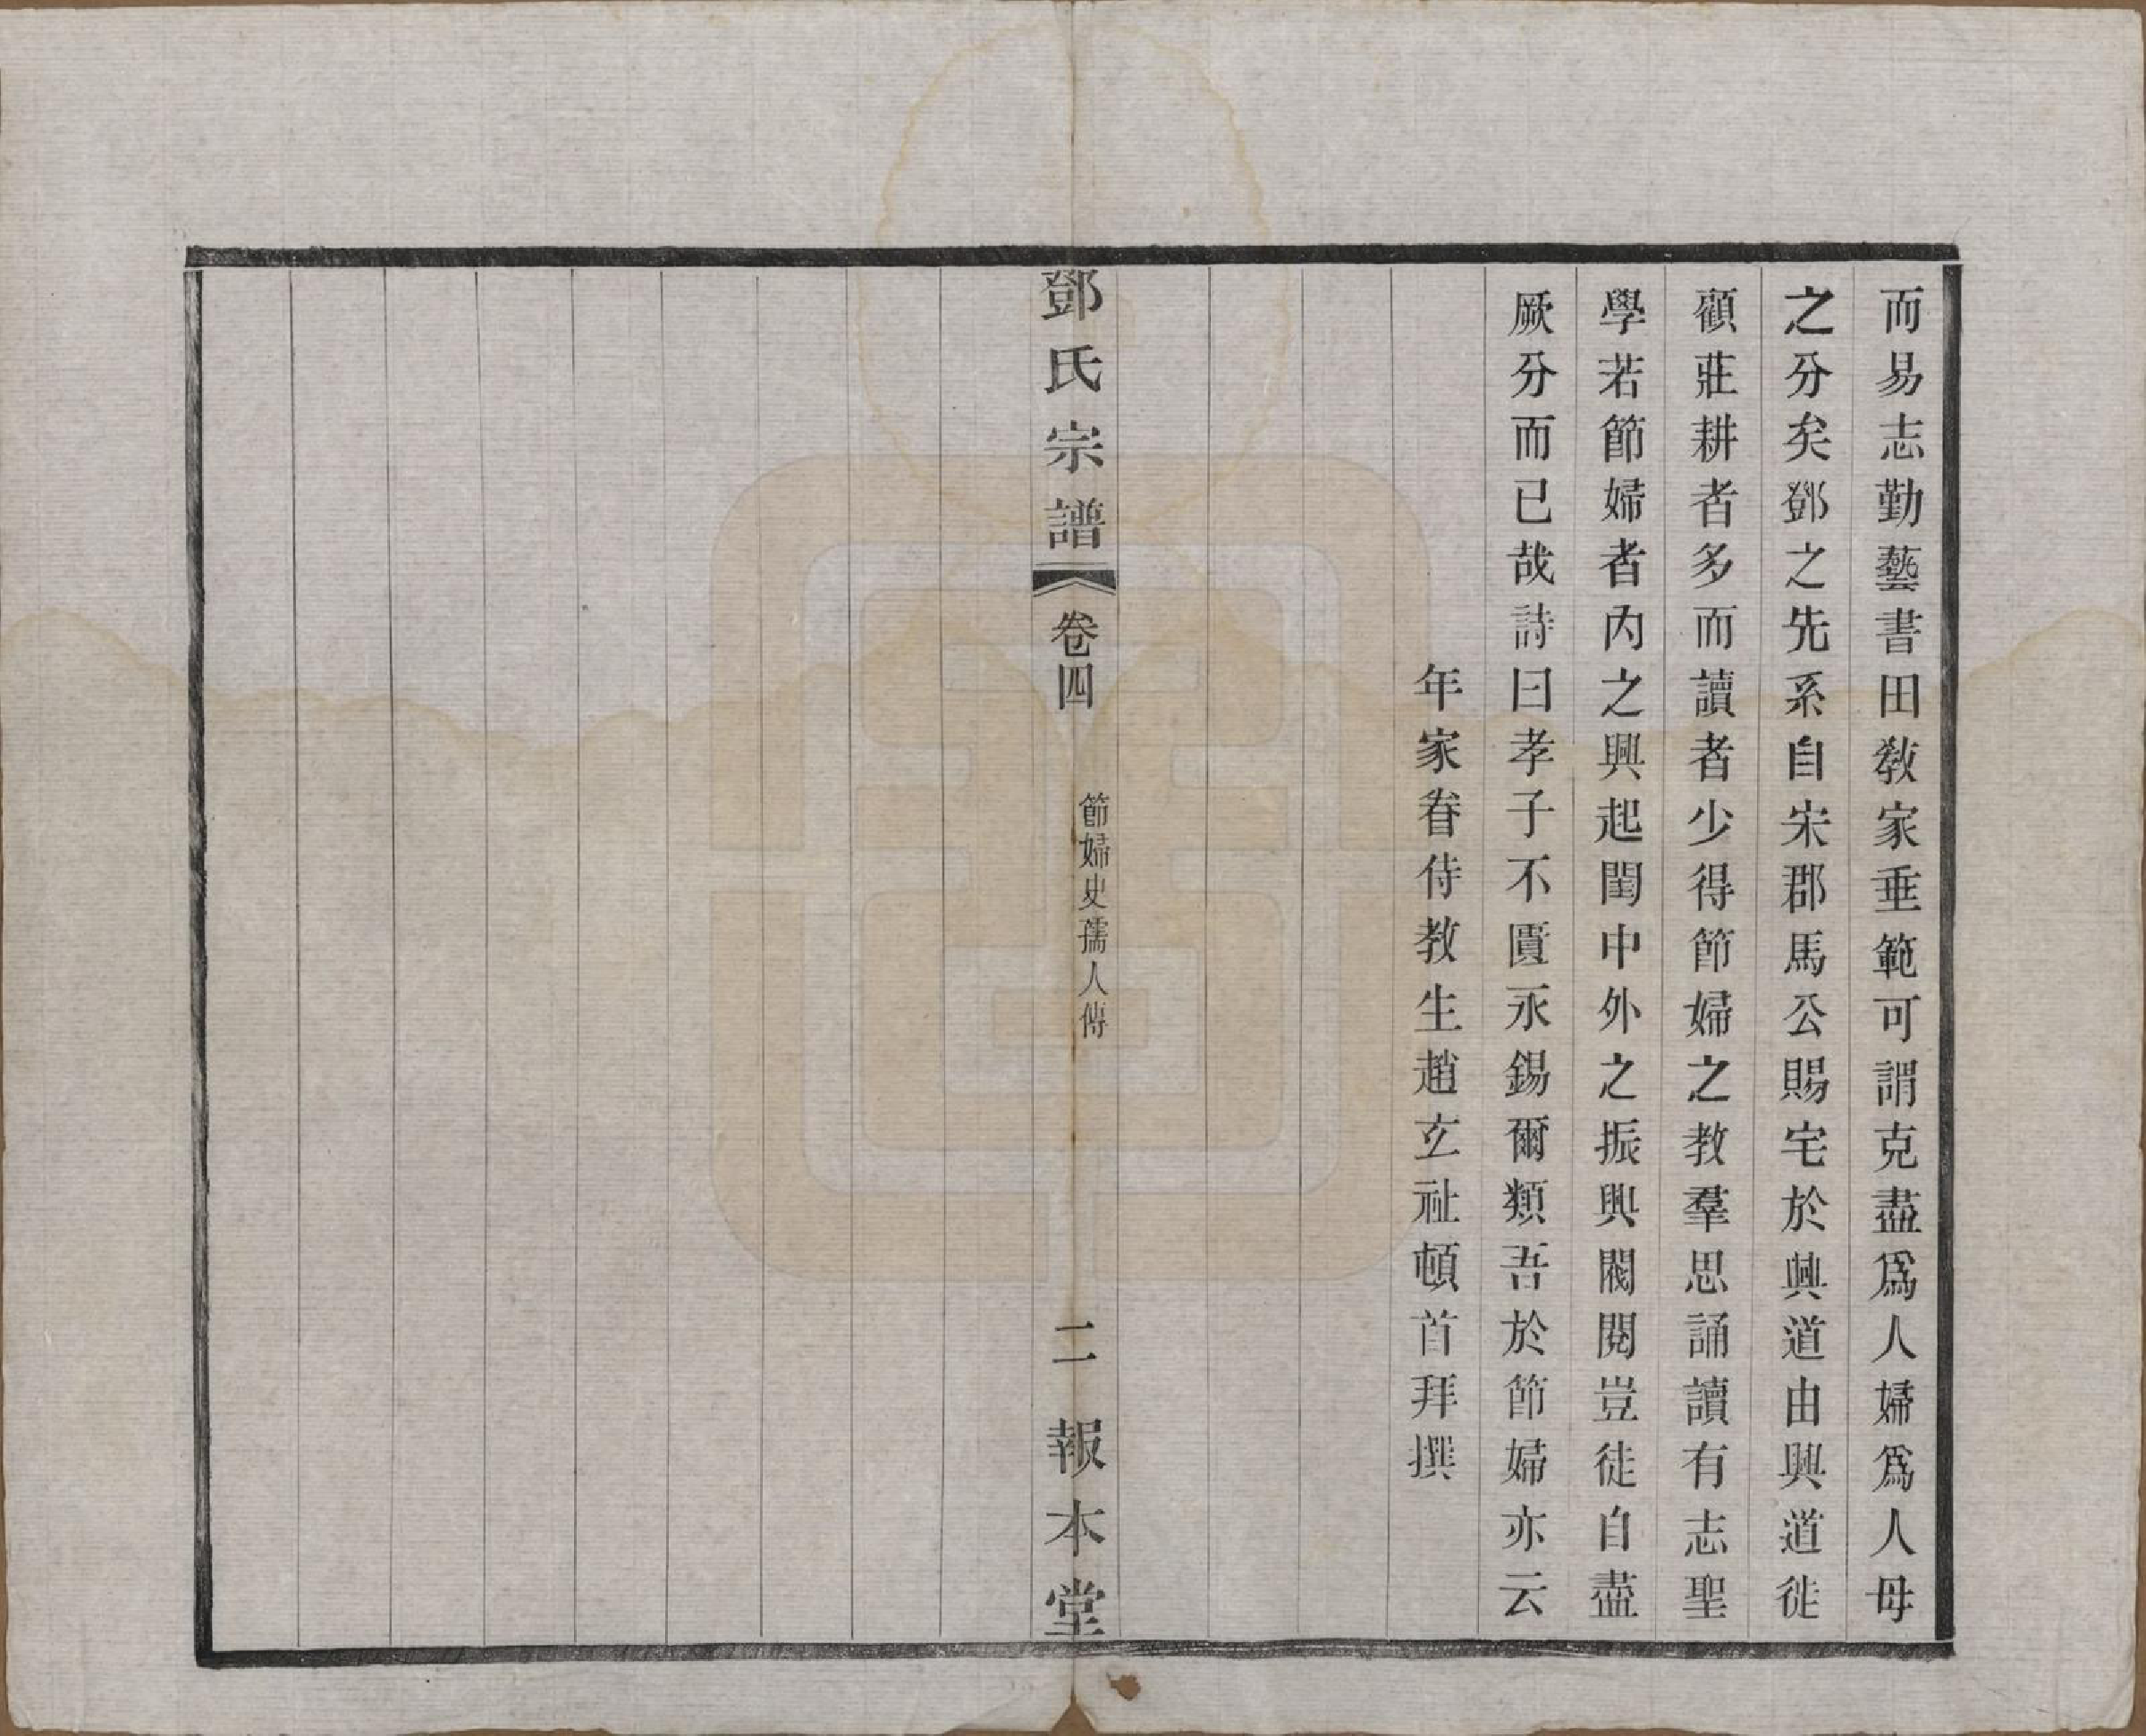 而易志勤藝書田教家垂範可謂克盡爲人婦爲人母
之分矣鄧之先系自宋郡馬公賜宅於興道由興道徙
顧莊耕者多而讀者少得節婦之教羣思誦讀有志聖
學若節婦者內之興起閨中外之振興閥閱豈徒自盡
厥分而已哉詩曰孝子不匱永錫爾類吾於節婦亦云
年家眷侍教生趙玄祉頓首拜撰
鄧氏宗譜
卷四
節婦史孺人傳
二
報本堂